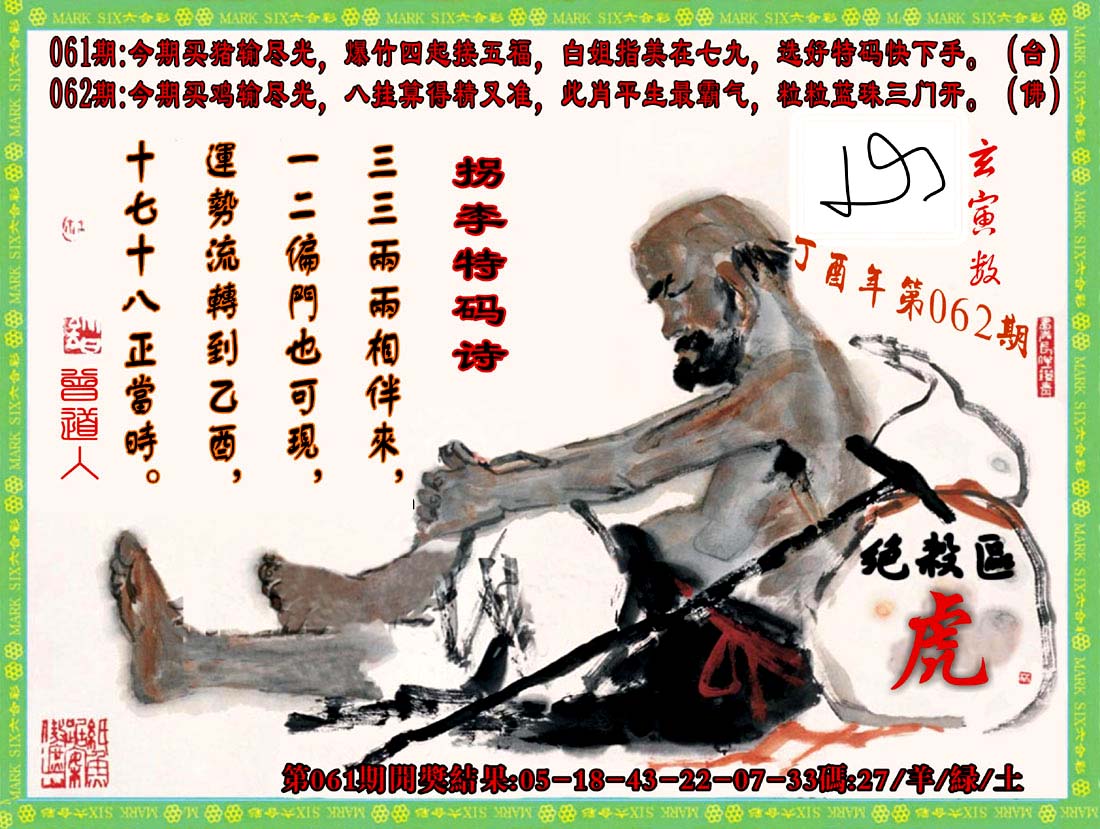 MARK SIX六合彩
061期:今期买猪输尽光，爆竹四起接五福，白姐指美在七九，选好特码快下手。(台)
062期:今期买鸡输尽光，八挂算得精又准，此肖平生最霸气，粒粒蓝珠三门开。(佛)
玄寅数
丁酉年第062期
拐李特码诗
三三兩兩相伴來，
一二偏門也可現，
運勢流轉到乙酉，
十七十八正當時。
曾道人
绝殺區
虎
第061期開獎結果:05-18-43-22-07-33碼:27/羊/緑/土